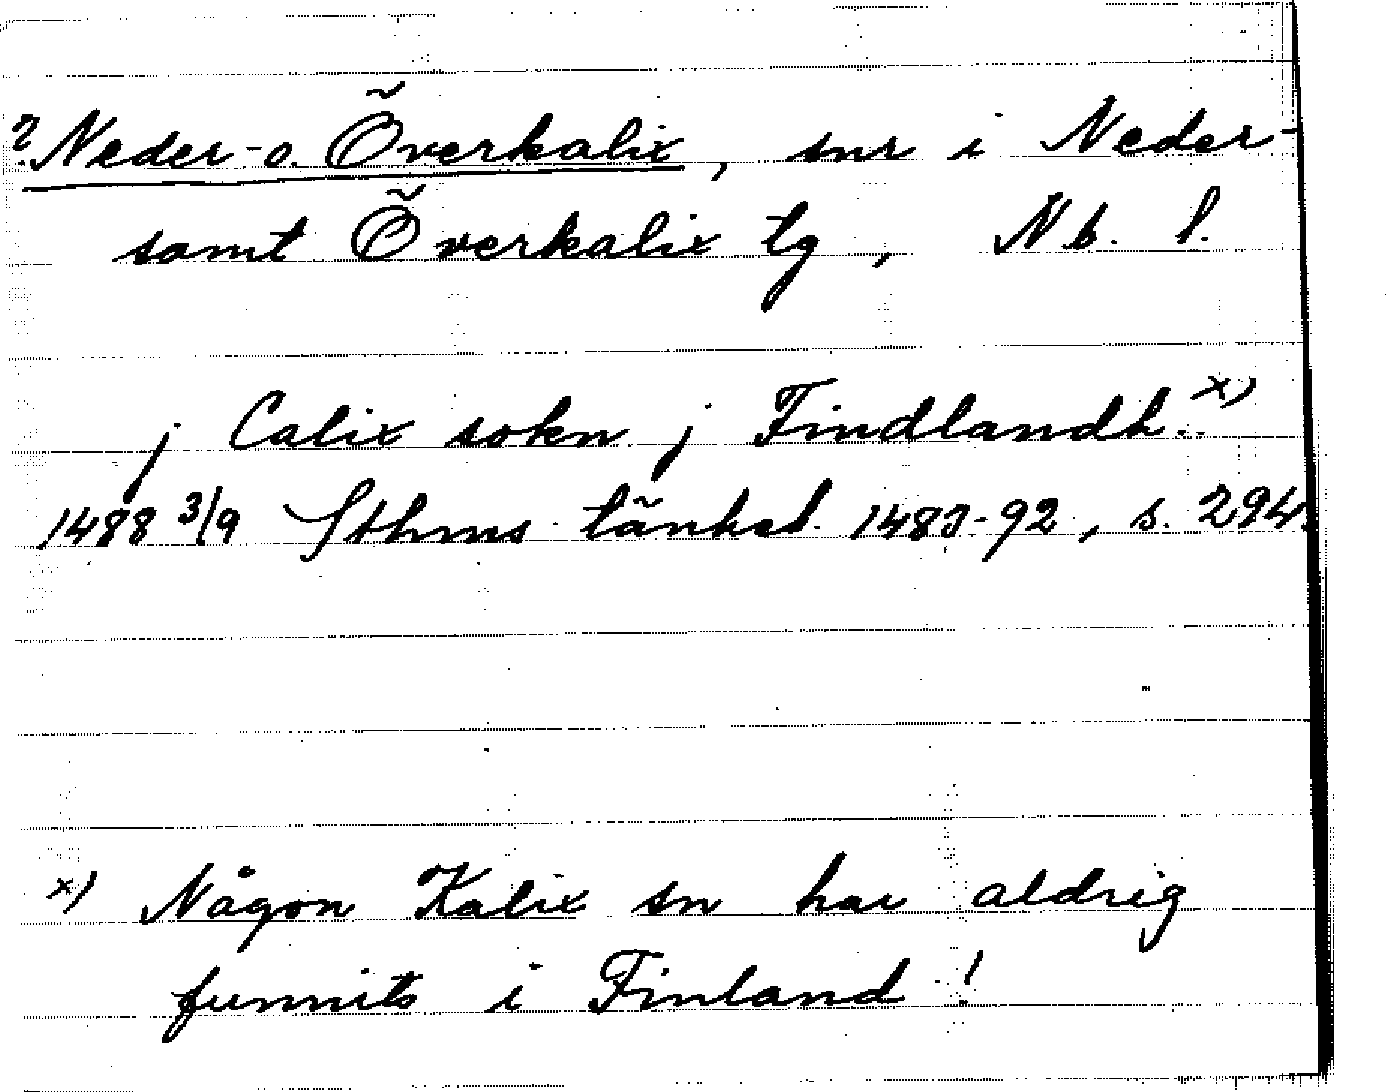 ? Neder- o. Överkalix, snr i Neder-
samt Överkalix tg, Nb. l.
j Calix sokn j Findlandh. x)
1488 3/9 Sthms tänkeb. 1483-92, s. 294.
x) Någon Kalix sn har aldrig
funnits i Finland!